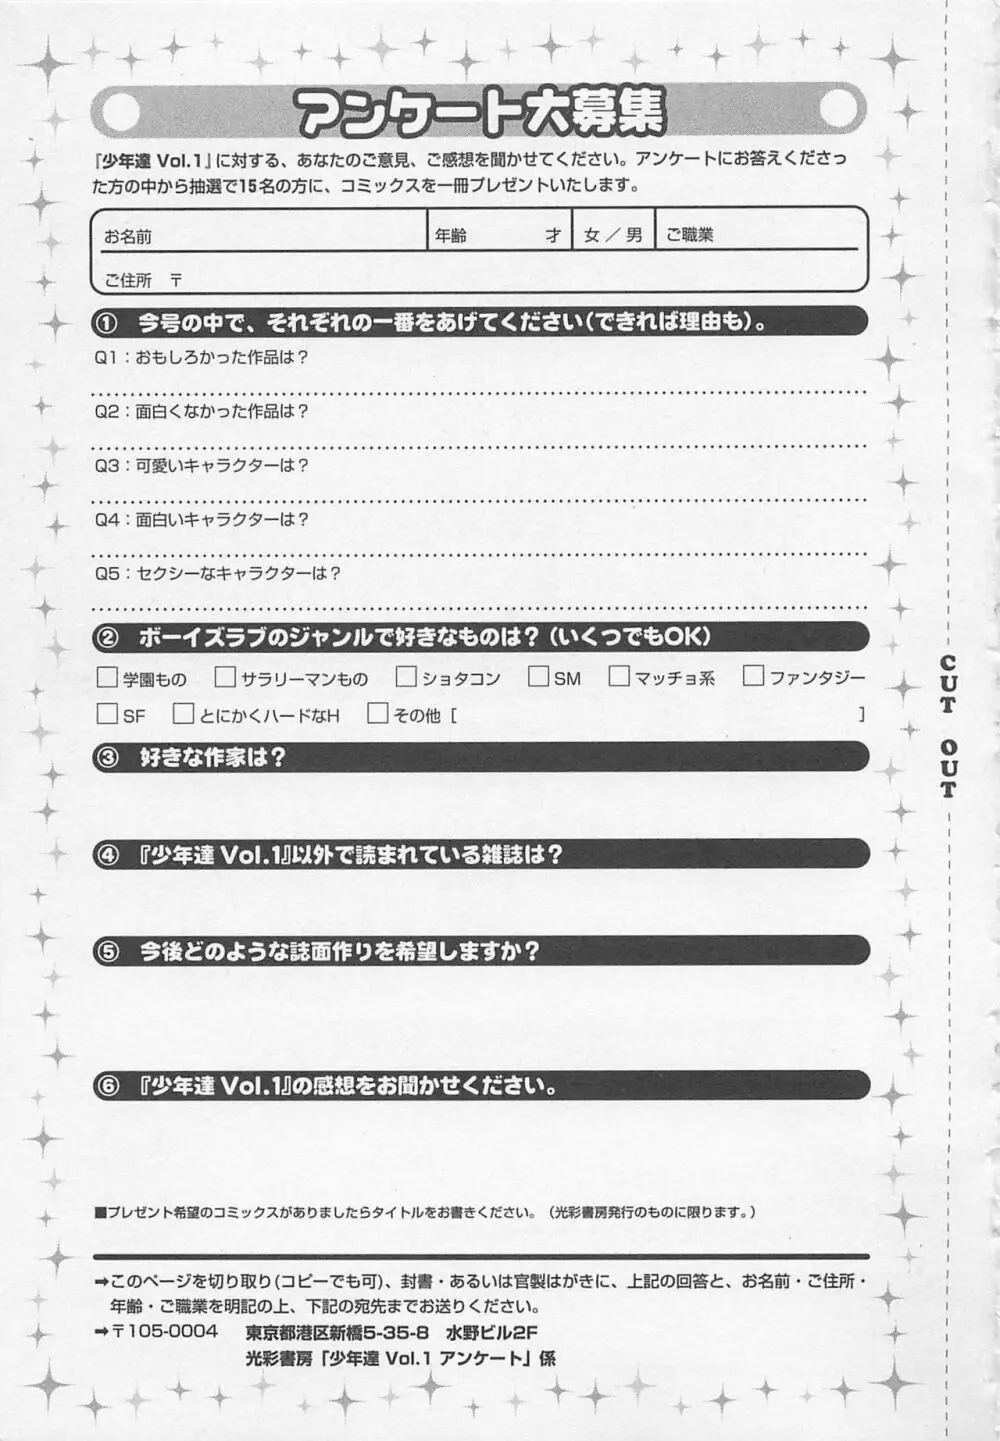 アンケート大募集
『少年達 Vol.1』に対する、あなたのご意見、ご感想を聞かせてください。アンケートにお答えくださっ
た方の中から抽選で15名の方に、コミックスを一冊プレゼントいたします。
お名前 年齢 才 女／男 ご職業
ご住所 〒
① 今号の中で、それぞれの一番をあげてください(できれば理由も)。
Q1：おもしろかった作品は？
Q2：面白くなかった作品は？
Q3：可愛いキャラクターは？
Q4：面白いキャラクターは？
Q5：セクシーなキャラクターは？
② ボーイズラブのジャンルで好きなものは？(いくつでもOK)
□学園もの □サラリーマンもの □ショタコン □SM □マッチョ系 □ファンタジー
□SF □とにかくハードなH □その他［ ］
③ 好きな作家は？
④ 『少年達 Vol.1』以外で読まれている雑誌は？
⑤ 今後どのような誌面作りを希望しますか？
⑥ 『少年達 Vol.1』の感想をお聞かせください。
■プレゼント希望のコミックスがありましたらタイトルをお書きください。（光彩書房発行のものに限ります。）
➞このページを切り取り(コピーでも可)、封書・あるいは官製はがきに、上記の回答と、お名前・ご住所・
年齢・ご職業を明記の上、下記の宛先までお送りください。
➞〒105-0004 東京都港区新橋5-35-8 水野ビル2F
光彩書房「少年達 Vol.1 アンケート」係
CUT OUT